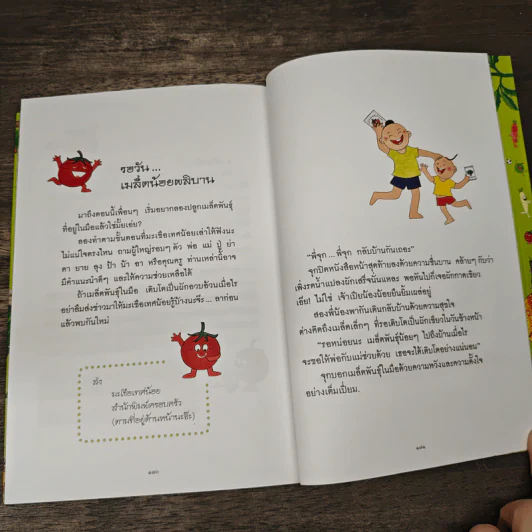 รอวัน...
เมล็ดน้อยผลิบาน
มาถึงตอนนี้เพื่อนๆ เริ่มอยากลองปลูกเมล็ดพันธุ์
ที่อยู่ในมือแล้วใช่มั้ยเอ่ย?
ลองทำตามขั้นตอนที่มะเขือเทศน้อยเล่าให้ฟังนะ
ไม่แน่ใจตรงไหน ถามผู้ใหญ่รอบๆ ตัว พ่อ แม่ ปู่ ย่า
ตา ยาย ลุง ป้า น้า อา หรือคุณครู ท่านเหล่านี้อาจ
มีคำแนะนำดีๆ และให้ความช่วยเหลือได้
ถ้าเมล็ดพันธุ์ในมือ เติบโตเป็นผักอวบอ้วนเมื่อไร
อย่าลืมส่งข่าวมาให้มะเขือเทศน้อยรู้บ้างนะจ๊ะ... ลาก่อน
แล้วพบกันใหม่
ส่ง
มะเขือเทศน้อย
สำนักพิมพ์ครอบครัว
(ตามที่อยู่ด้านหน้านะจ๊ะ)
"พี่จุก...พี่จุก กลับบ้านกันเถอะ"
จุกปิดหนังสือหน้าสุดท้ายลงด้วยความชื่นบาน คล้ายๆ กับว่า
เพิ่งรดน้ำแปลงผักเสร็จนั่นแหละ พอหันไปที่เจอผักกาดเขียว
เอ๊ย! ไม่ใช่ เจ้าเปียน้องน้อยยืนยิ้มเผล่อยู่
สองพี่น้องพากันเดินกลับบ้านด้วยความสุขใจ
ต่างคิดถึงเมล็ดเล็กๆ ที่รอเติบโตเป็นผักเขียวในวันข้างหน้า
"รอหน่อยนะ เมล็ดพันธุ์น้อยๆ ไปถึงบ้านเมื่อไร
จะขอให้พ่อกับแม่ช่วยด้วย เธอจะได้เติบโตอย่างแน่นอน"
จุกบอกเมล็ดพันธุ์ในมือด้วยความหวังและความตั้งใจ
อย่างเต็มเปี่ยม.